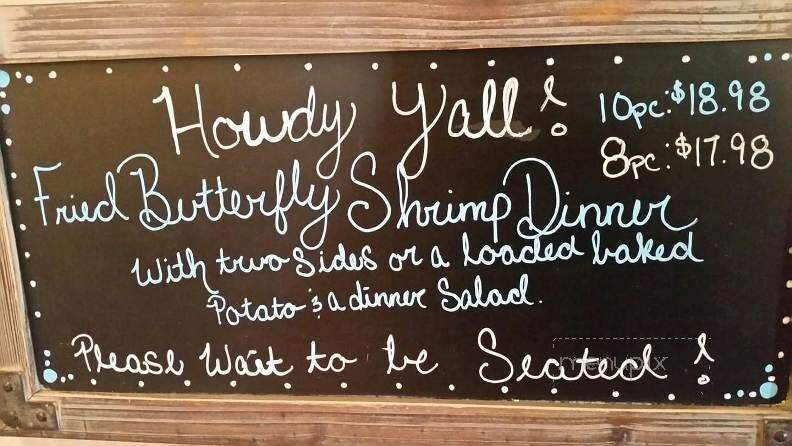 Howdy Y'all!
10pc: $18.98
8pc: $17.98
Fried Butterfly Shrimp Dinner
With two Sides or a loaded baked
Potato & a dinner Salad.
Please Wait to be Seated!
menupix